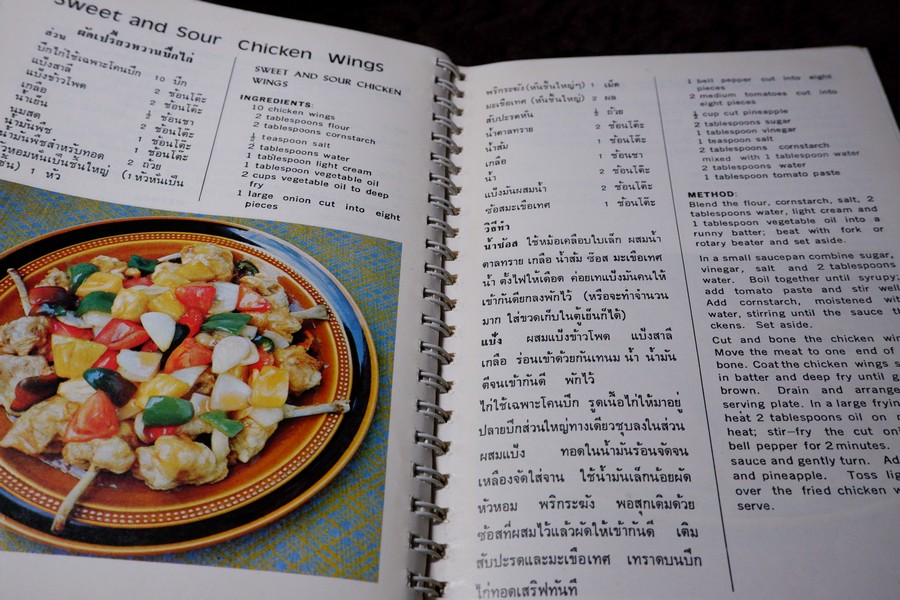 Sweet and Sour Chicken Wings
ส่วน ผัดเปรี้ยวหวานปีกไก่
ปีกไก่ใช้เฉพาะโคนปีก 10 ปีก
แป้งสาลี 2 ช้อนโต๊ะ
แป้งข้าวโพด 2 ช้อนโต๊ะ
เกลือ ½ ช้อนชา
น้ำเย็น 2 ช้อนโต๊ะ
นมสด 1 ช้อนโต๊ะ
น้ำมันพืช 1 ช้อนโต๊ะ
น้ำมันพืชสำหรับทอด 2 ถ้วย
หัวหอมหั่นเป็นชิ้นใหญ่ (1 หัวหั่นเป็น
ชิ้น) 1 หัว
SWEET AND SOUR CHICKEN
WINGS
INGREDIENTS:
10 chicken wings
2 tablespoons flour
2 tablespoons cornstarch
½ teaspoon salt
2 tablespoons water
1 tablespoon light cream
1 tablespoon vegetable oil
2 cups vegetable oil to deep
fry
1 large onion cut into eight
pieces
พริกระฆัง (หั่นชิ้นใหญ่ๆ) 1 เม็ด
มะเขือเทศ (หั่นชิ้นใหญ่) 2 ผล
สับปะรดหั่น ½ ถ้วย
น้ำตาลทราย 2 ช้อนโต๊ะ
น้ำส้ม 1 ช้อนโต๊ะ
เกลือ 1 ช้อนชา
น้ำ 2 ช้อนโต๊ะ
แป้งมันผสมน้ำ 2 ช้อนโต๊ะ
ซ้อสมะเขือเทศ 1 ช้อนโต๊ะ
วิธีทำ
น้ำซ่อส ใช้หม้อเคลือบใบเล็ก ผสมน้ำ
ตาลทราย เกลือ น้ำส้ม ซ้อส มะเขือเทศ
น้ำ ตั้งไฟให้เดือด ค่อยเทแป้งมันคนให้
เข้ากันดียกลงพักไว้ (หรือจะทำจำนวน
มาก ใส่ขวดเก็บในตู้เย็นก็ได้)
แป้ง ผสมแป้งข้าวโพด แป้งสาลี
เกลือ ร่อนเข้าด้วยกันเทนม น้ำ น้ำมัน
ตีจนเข้ากันดี พักไว้
ไก่ใช้เฉพาะโคนปีก รูดเนื้อไก่ให้มาอยู่
ปลายปีกส่วนใหญ่ทางเดียวชุบลงในส่วน
ผสมแป้ง ทอดในน้ำมันร้อนจัดจน
เหลืองจัดใส่จาน ใช้น้ำมันเล็กน้อยผัด
หัวหอม พริกระฆัง พอสุกเติมด้วย
ซ้อสที่ผสมไว้แล้วผัดให้เข้ากันดี เติม
สับปะรดและมะเขือเทศ เทราดบนปีก
ไก่ทอดเสริฟทันที
1 bell pepper cut into eight
pieces
2 medium tomatoes cut into
eight pieces
½ cup cut pineapple
2 tablespoons sugar
1 tablespoon vinegar
1 teaspoon salt
2 tablespoons cornstarch
mixed with 1 tablespoon water
2 tablespoons water
1 tablespoon tomato paste
METHOD:
Blend the flour, cornstarch, salt, 2
tablespoons water, light cream and
1 tablespoon vegetable oil into a
runny batter; beat with fork or
rotary beater and set aside.
In a small saucepan combine sugar,
vinegar, salt and 2 tablespoons
water. Boil together until syrupy;
add tomato paste and stir well
Add cornstarch, moistened wit
water, stirring until the sauce th
ckens. Set aside.
Cut and bone the chicken win
Move the meat to one end of
bone. Coat the chicken wings s
in batter and deep fry until g
brown. Drain and arrange
serving plate. In a large fryin
heat 2 tablespoons oil on m
heat; stir—fry the cut oni
bell pepper for 2 minutes.
sauce and gently turn. Ad
and pineapple. Toss lig
over the fried chicken w
serve.